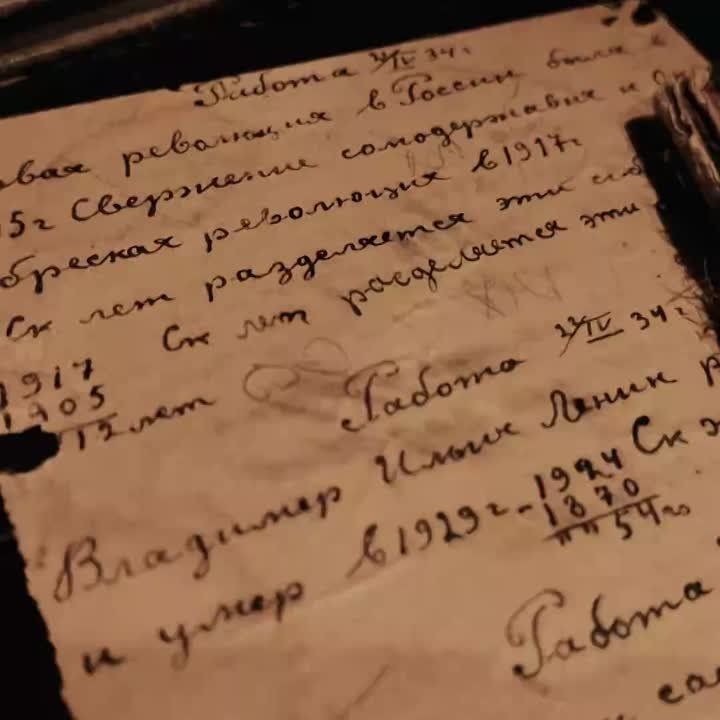 Работа 22/IV 34г.
вая революция в России была в
5г Свержение самодержавия и Ок
обреская революция в 1917г
Ск лет разделяется эти соб
Ск лет расделяется эти
1917
1905
12 лет
Работа 22/IV 34г
Владимер Ильич Ленин р
и умер в 1929г. Ск ж
1924
1870
54г.
Работа